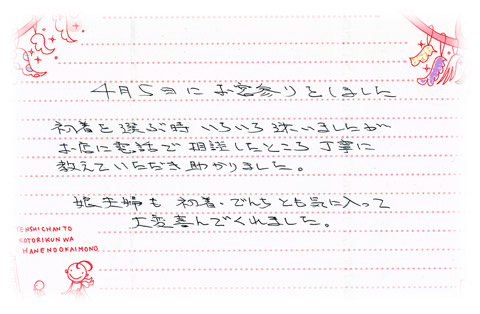 4月5日にお宮参りをしました
初着を選ぶ時いろいろ迷いましたが
お店に電話で相談したところ丁寧に
教えていただき助かりました。
娘夫婦も初着・でんちとも気に入って
大変喜んでくれました。
TENSHICHAN TO
KOTORIKUN WA
HANE NO OKAIMONO